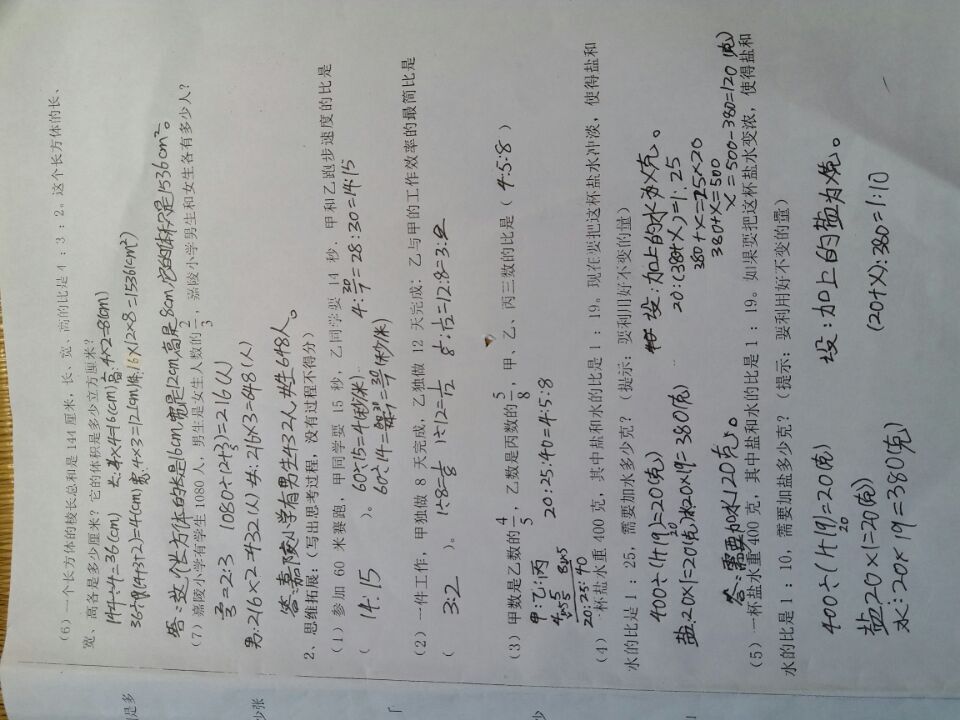 (6)一个长方体的棱长总和是144厘米,长、宽、高的比是4:3:2。这个长方体的长、
宽、高各是多少厘米?它的体积是多少立方厘米?
144÷4=36(cm) 长:4×4=16(cm) 高:4×2=8(cm)
36÷(4+3+2)=4(cm) 宽:4×3=12(cm) 16×12×8=1536(cm²)
答:这个长方体的长是16cm,宽是12cm,高是8cm,它的体积是1536cm²。
(7)嘉陵小学有学生1080人,男生是女生人数的2/3,嘉陵小学男生和女生各有多少人?
2/3=2:3 1080÷(2+3)=216(人)
男:216×2=432(人) 女:216×3=648(人)
答:嘉陵小学有男生432人,女生648人。
2、思维拓展:(写出思考过程,没有过程不得分)
(1)参加60米赛跑,甲同学要15秒,乙同学要14秒,甲和乙跑步速度的比是
( 14:15 )。
60÷15=4(米/秒)
60÷14=30/7(米/秒)
4:30/7=28:30=14:15
(2)一件工作,甲独做8天完成,乙独做12天完成;乙与甲的工作效率的最简比是
( 3:2 )。
1÷8=1/8 1÷12=1/12 1/8:1/12=12:8=3:2
(3)甲数是乙数的4/5,乙数是丙数的5/8,甲、乙、丙三数的比是( 4:5:8 )
甲:乙:丙
20:25:40
20:25:40=4:5:8
(4)一杯盐水重400克,其中盐和水的比是1:19。现在要把这杯盐水冲淡,使得盐和
水的比是1:25,需要加水多少克?(提示:要利用好不变的量)
400÷(1+19)=20(克)
盐:20×1=20(克) 水:20×19=380(克)
设:加上的水为x克。
20:(380+x)=1:25
380+x=25×20
380+x=500
x=500-380=120(克)
答:需要加水120克。
(5)一杯盐水重400克,其中盐和水的比是1:19。如果要把这杯盐水变浓,使得盐和
水的比是1:10,需要加盐多少克?(提示:要利用好不变的量)
400÷(1+19)=20(克)
盐20×1=20(克)
水:20×19=380(克)
设:加上的盐为x克。
(20+x):380=1:10
是多
少张
少